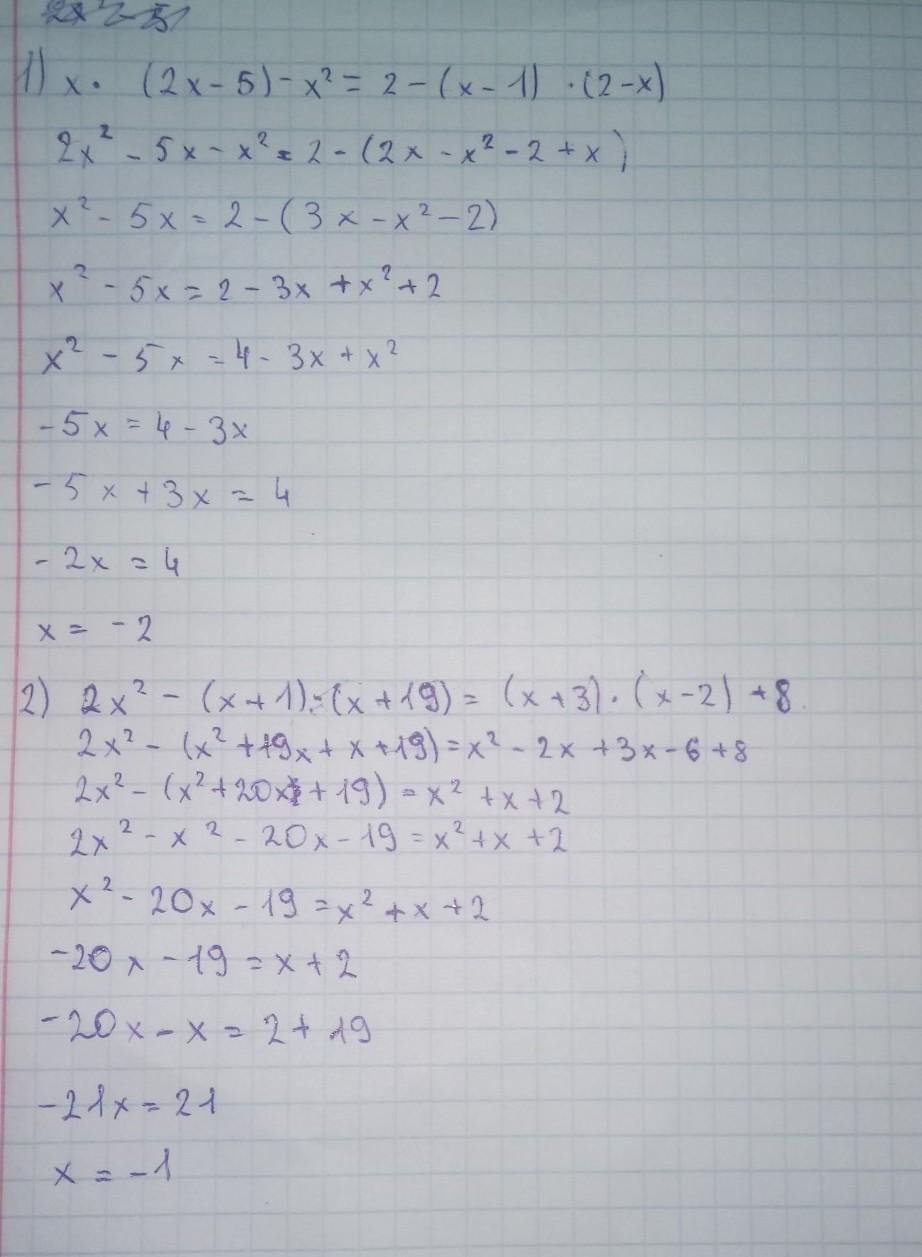 1) x · (2x - 5) - x² = 2 - (x - 1) · (2 - x)
2x² - 5x - x² = 2 - (2x - x² - 2 + x)
x² - 5x = 2 - (3x - x² - 2)
x² - 5x = 2 - 3x + x² + 2
x² - 5x = 4 - 3x + x²
-5x = 4 - 3x
-5x + 3x = 4
-2x = 4
x = -2
2) 2x² - (x + 1) · (x + 19) = (x + 3) · (x - 2) + 8
2x² - (x² + 19x + x + 19) = x² - 2x + 3x - 6 + 8
2x² - (x² + 20x + 19) = x² + x + 2
2x² - x² - 20x - 19 = x² + x + 2
x² - 20x - 19 = x² + x + 2
-20x - 19 = x + 2
-20x - x = 2 + 19
-21x = 21
x = -1